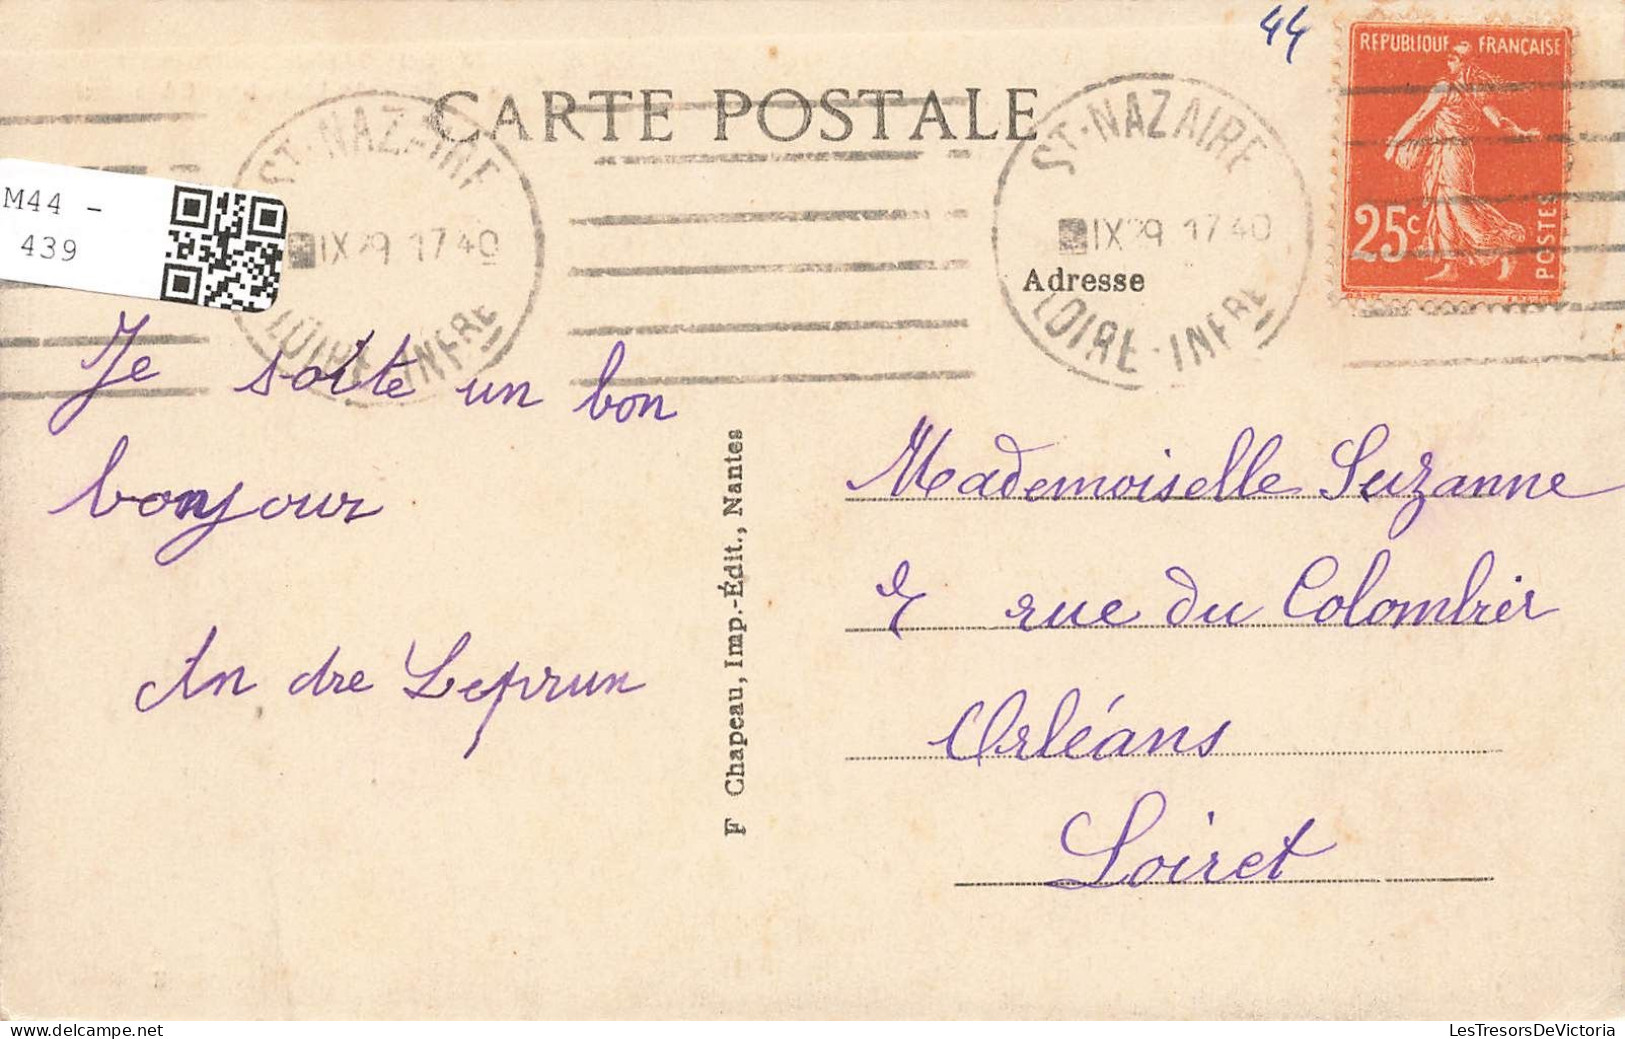 44
CARTE POSTALE
REPUBLIQUE FRANÇAISE
25c
POSTES
ST-NAZAIRE
IX 29 17 40
LOIRE-INFRE
ST-NAZAIRE
IX 29 17 40
LOIRE-INFRE
M44 -
439
Adresse
Je soite un bon
bonjour
An dre Leprun
F Chapeau, Imp.-Édit., Nantes
Mademoiselle Suzanne
rue du Colombier
Orléans
Loiret
LesTresorsDeVictoria